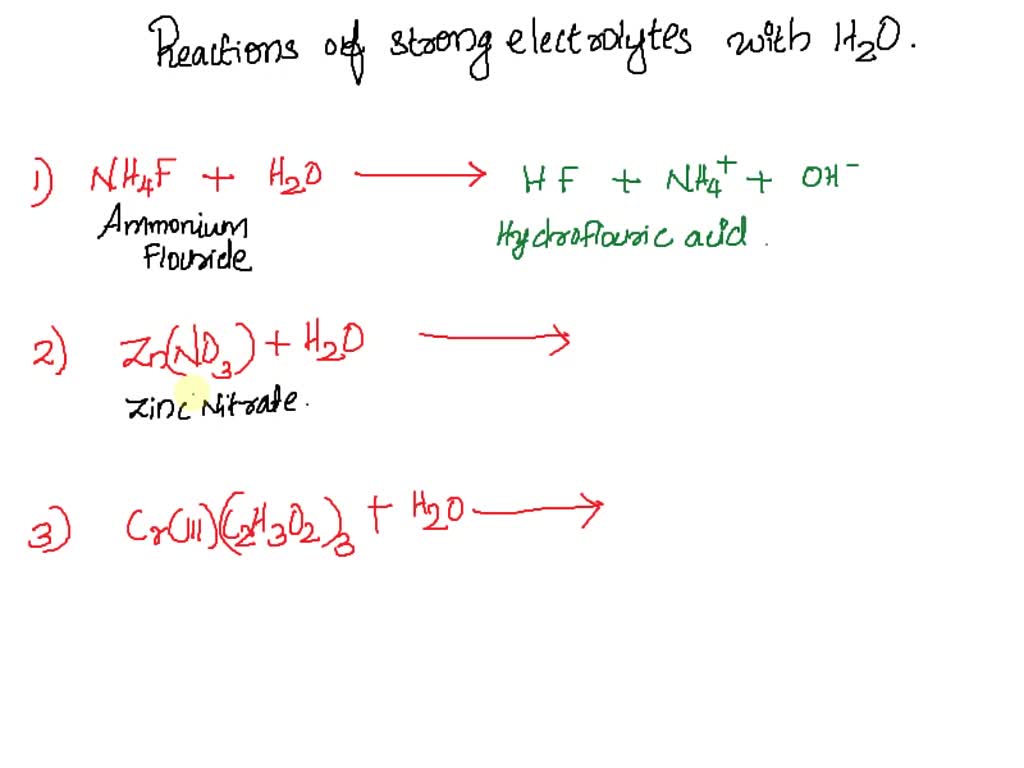 Reactions of strong electrolytes with H2O.
1) NH4F + H2O ⟶ HF + NH4+ + OH-
Ammonium Flouride
Hydroflouric acid.
2) Zn(NO3) + H2O ⟶
Zinc Nitrate.
3) Cr(III)(C2H3O2)3 + H2O ⟶